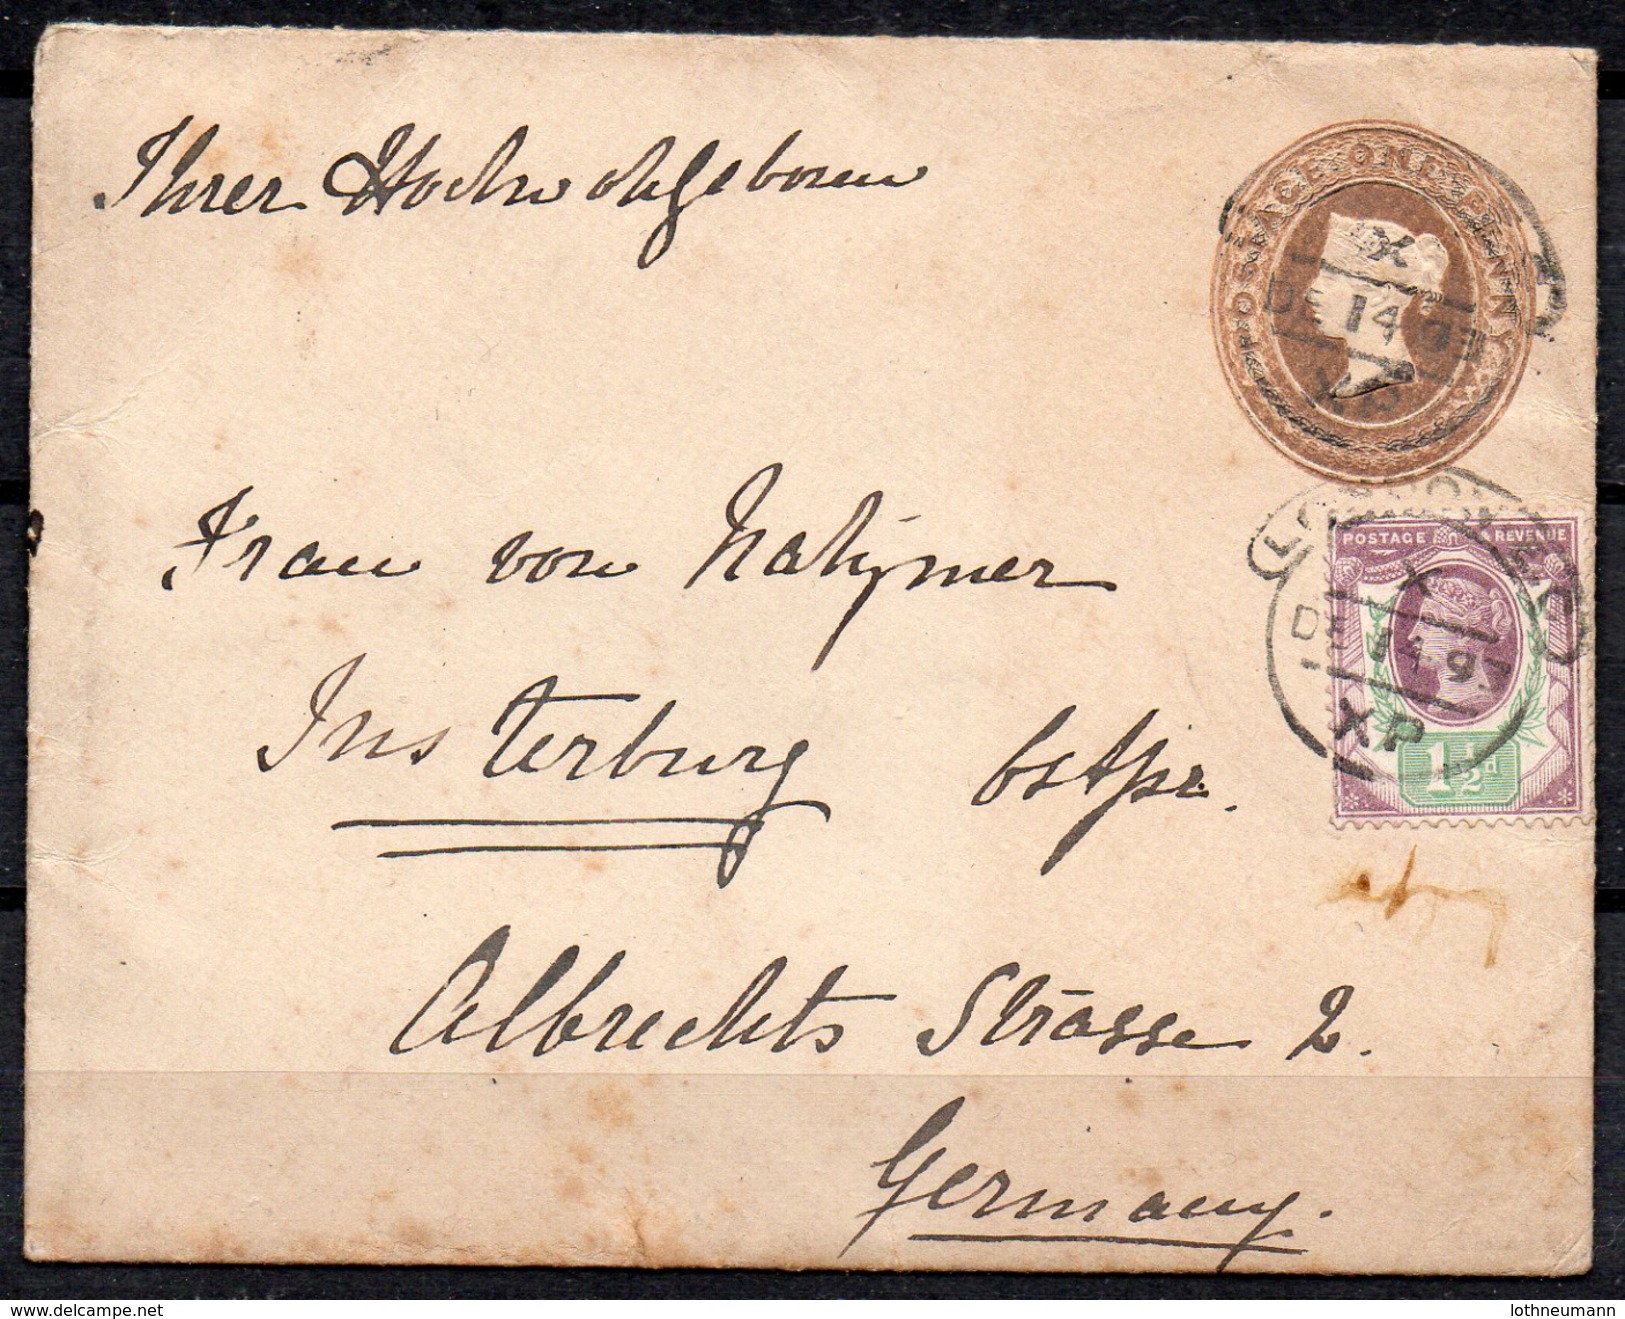 Ihrer Hochwohlgeboren
POSTAGE ONE PENNY
X
DE 14 97
XP
Frau von Natzmer
LONDON
POSTAGE & REVENUE
X
DE 14 97
XP
1½d
Insterburg Ostpr.
Albrechts Strasse 2.
Germany.
delcampe.net
lothneumann